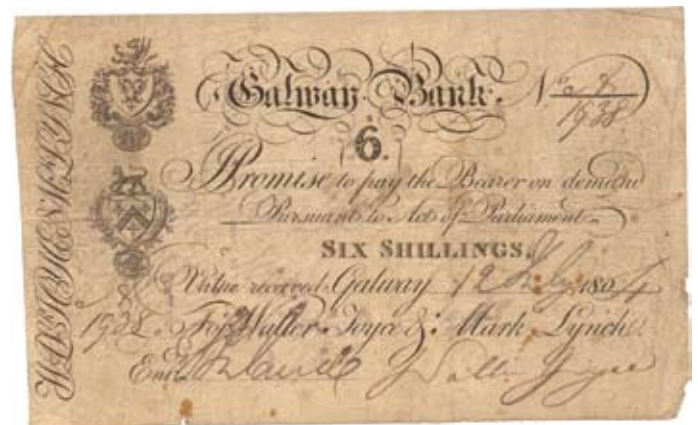 WR. JOYCE & M. LYNCH
Galway Bank. No
1938
6.
I Promise to pay the Bearer on demand
Pursuant to Acts of Parliament
SIX SHILLINGS.
Value received Galway 12 July 1804
1938 For Walter Joyce & Mark Lynch.
Entd. Walter Joyce